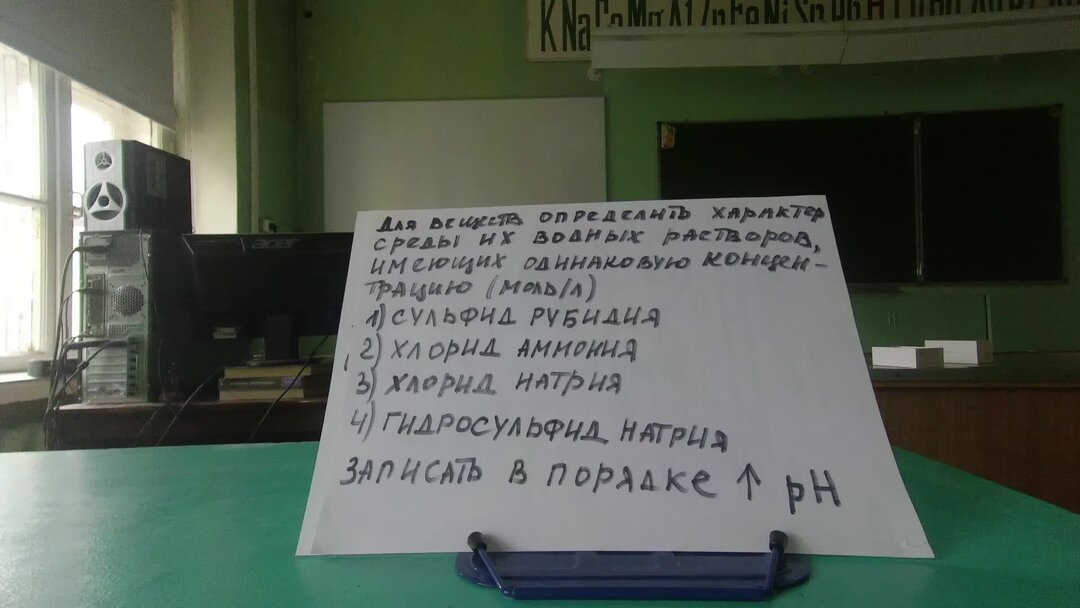 K Na Ca Mg Al Zn Fe Ni Sn Pb H
acer
Для веществ определить характер
среды их водных растворов,
имеющих одинаковую концен-
трацию (моль/л)
1) сульфид рубидия
2) хлорид аммония
3) хлорид натрия
4) гидросульфид натрия
Записать в порядке ↑ pH